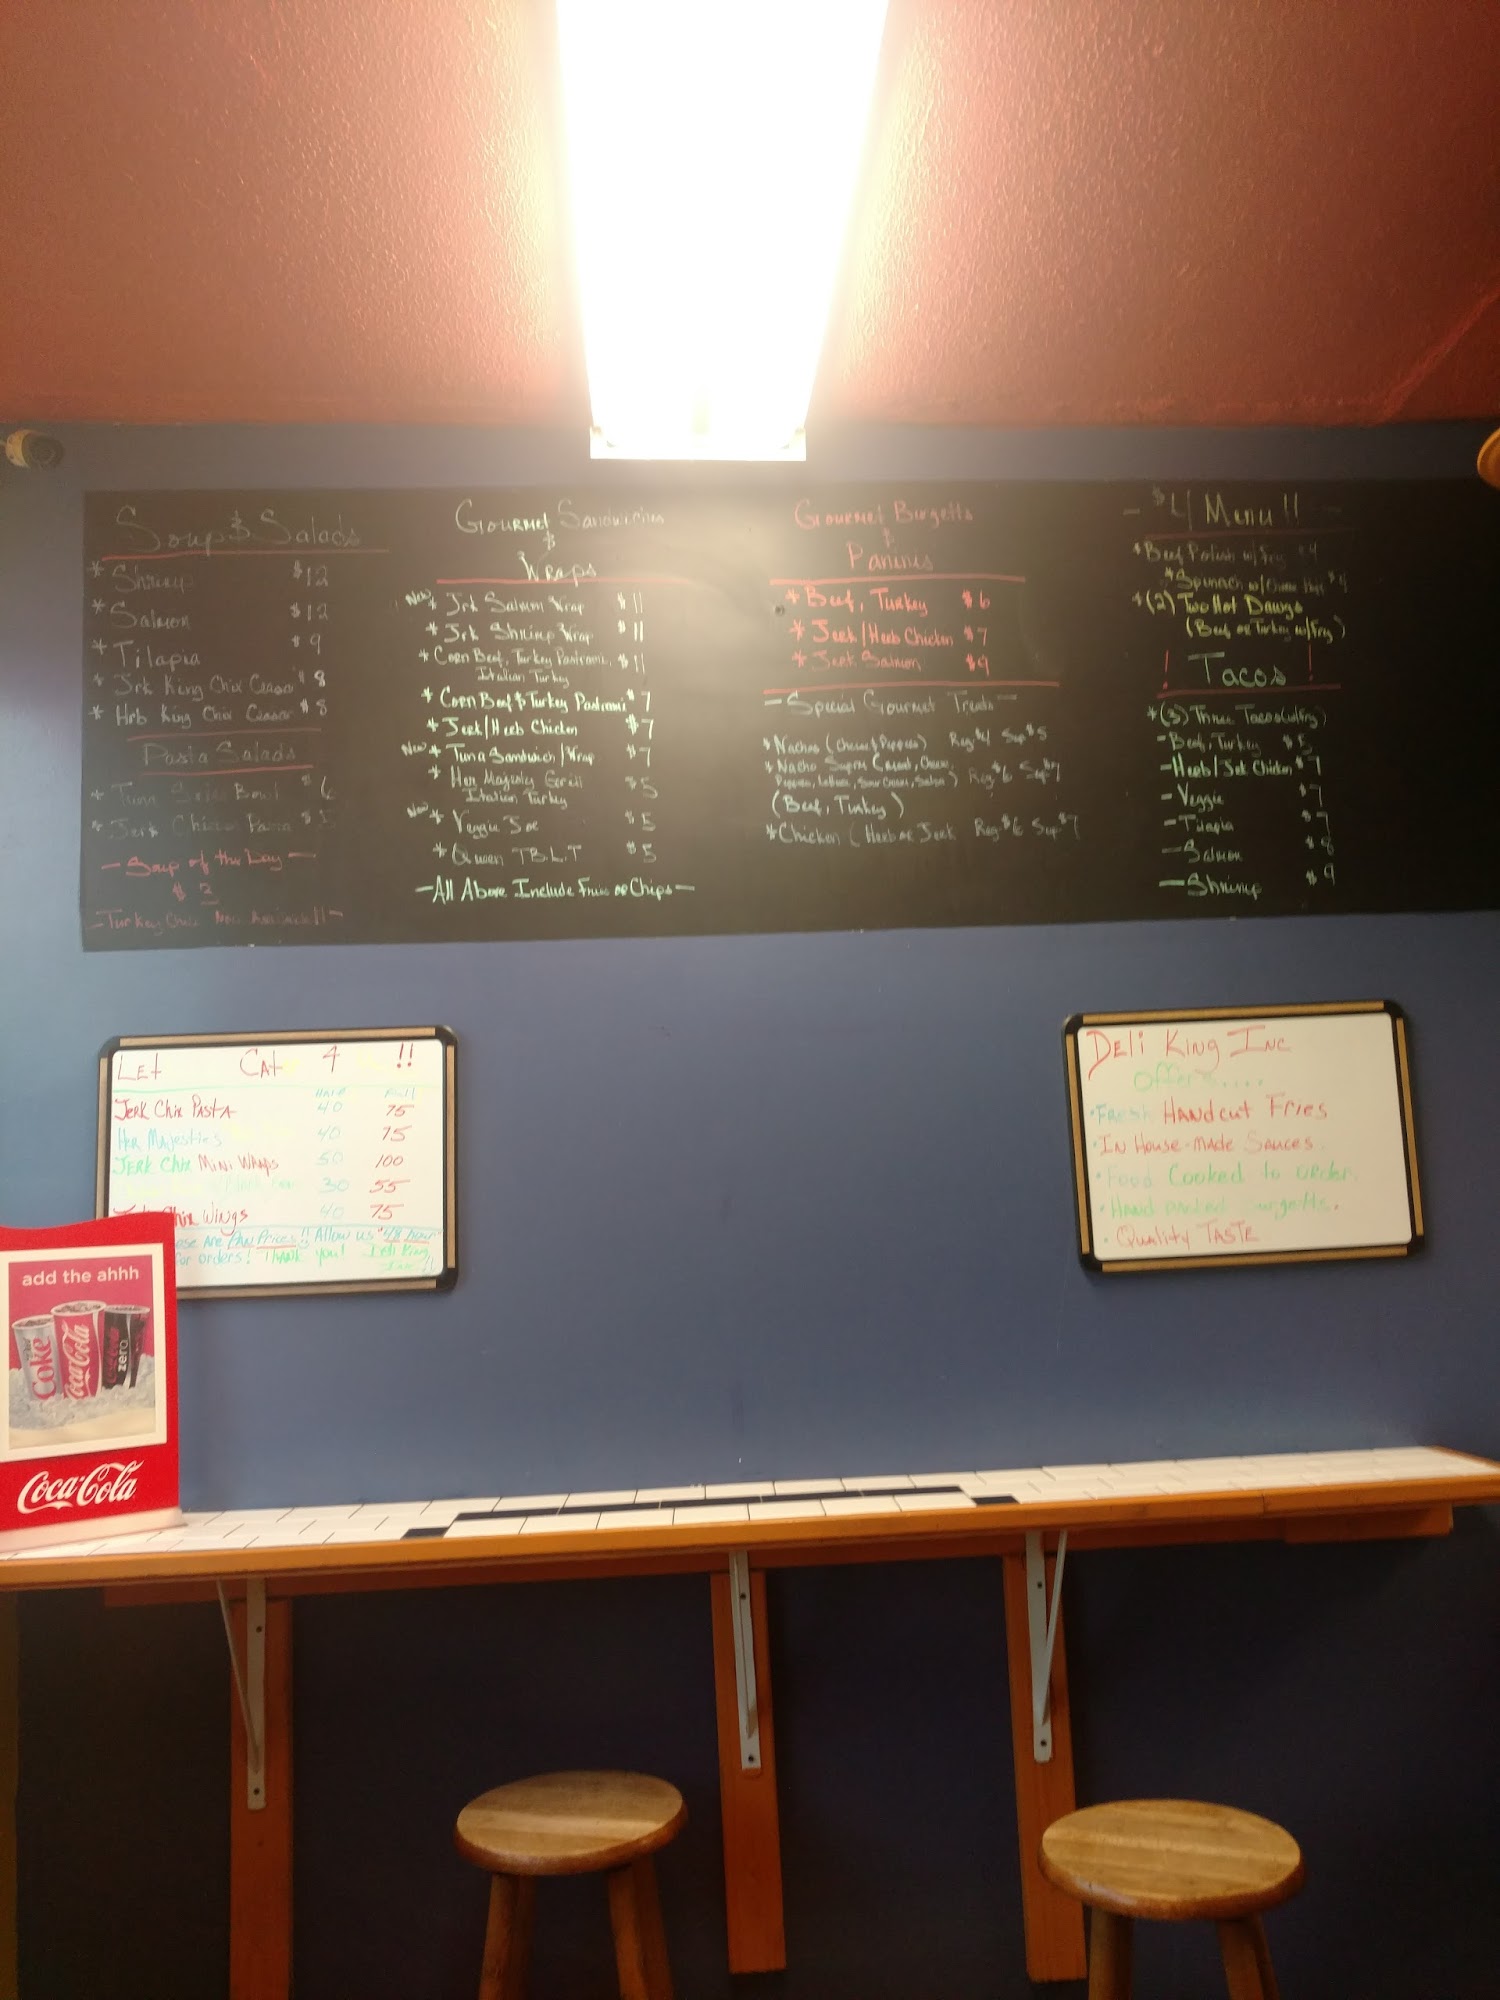 Soup & Salads
* Shrimp $12
* Salmon $12
* Tilapia $9
* Jrk King Chix Ceasar $8
* Hrb King Chix Ceasar $8
Pasta Salads
* Tuna Bowl $6
* Jerk Chicken Pasta
- Soup of the Day -
$3
- Turkey Chili Now Available!! -
Gourmet Sandwiches
&
Wraps
New * Jrk Salmon Wrap $11
* Jrk Shrimp Wrap $11
* Corn Beef, Turkey Pastrami, $11
Italian Turkey
* Corn Beef & Turkey Pastrami $7
* Jerk/Herb Chicken $7
New * Tuna Sandwich/Wrap $7
* Her Majesty Grill $5
Italian Turkey
New * Veggie Joe $5
* Queen T.B.L.T $5
- All Above Include Fries or Chips -
Gourmet Burgetts
&
Paninis
* Beef, Turkey $6
* Jerk/Herb Chicken $7
* Jerk Salmon $9
- Special Gourmet Treats -
* Nachos (Cheese & Peppers) Reg $4 Sup $5
* Nacho Supreme (Meat, Cheese,
Peppers, Lettuce, Sour Cream, Salsa) Reg $6 Sup $7
(Beef, Turkey)
* Chicken (Herb or Jerk Reg $6 Sup $7
- $4 Menu!! -
* Beef Polish w/Fry $4
* Spinach w/Cheese $4
* (2) Two Hot Dawgs
(Beef or Turkey w/Fry)
! Tacos !
* (3) Three Tacos (w/Fry)
- Beef, Turkey $5
- Herb/Jrk Chicken $7
- Veggie $7
- Tilapia $7
- Salmon $8
- Shrimp $9
Let Cat 4 !!
Half Full
Jerk Chix Pasta 40 75
Her Majesties 40 75
Jerk Chix Mini Wraps 50 100
30 55
Chix Wings 40 75
ese Are Pan Prices!! Allow us "48 hour"
for orders! Thank you! Deli King
Inc
Deli King Inc
Offers....
• Fresh Handcut Fries
• In House-Made Sauces.
• Food Cooked to order.
• Hand burgetts.
• Quality Taste
add the ahhh
Coke
Coca-Cola
zero
Coca-Cola